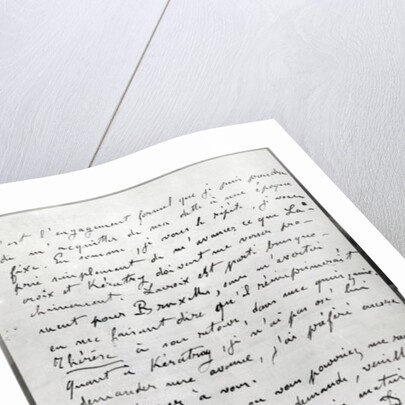 est l'engagement formel que je puis prendre
de m'acquitter de ma dette à une époque
fixe. En somme, je vous le répète, je vous
prie simplement de m'avancer ce que La=
croix et Kératry doivent me verser pro=
chainement. Lacroix est parti brusque=
ment pour Bruxelles, en m'
en me faisant dire qu'il réimprimerait
Thérèse à son retour, dans une quinzaine
quant à Kératry, je n'ai pas osé lui
demander une avance, j'ai préféré encore
à vous.
ou vous pourriez me
demande,